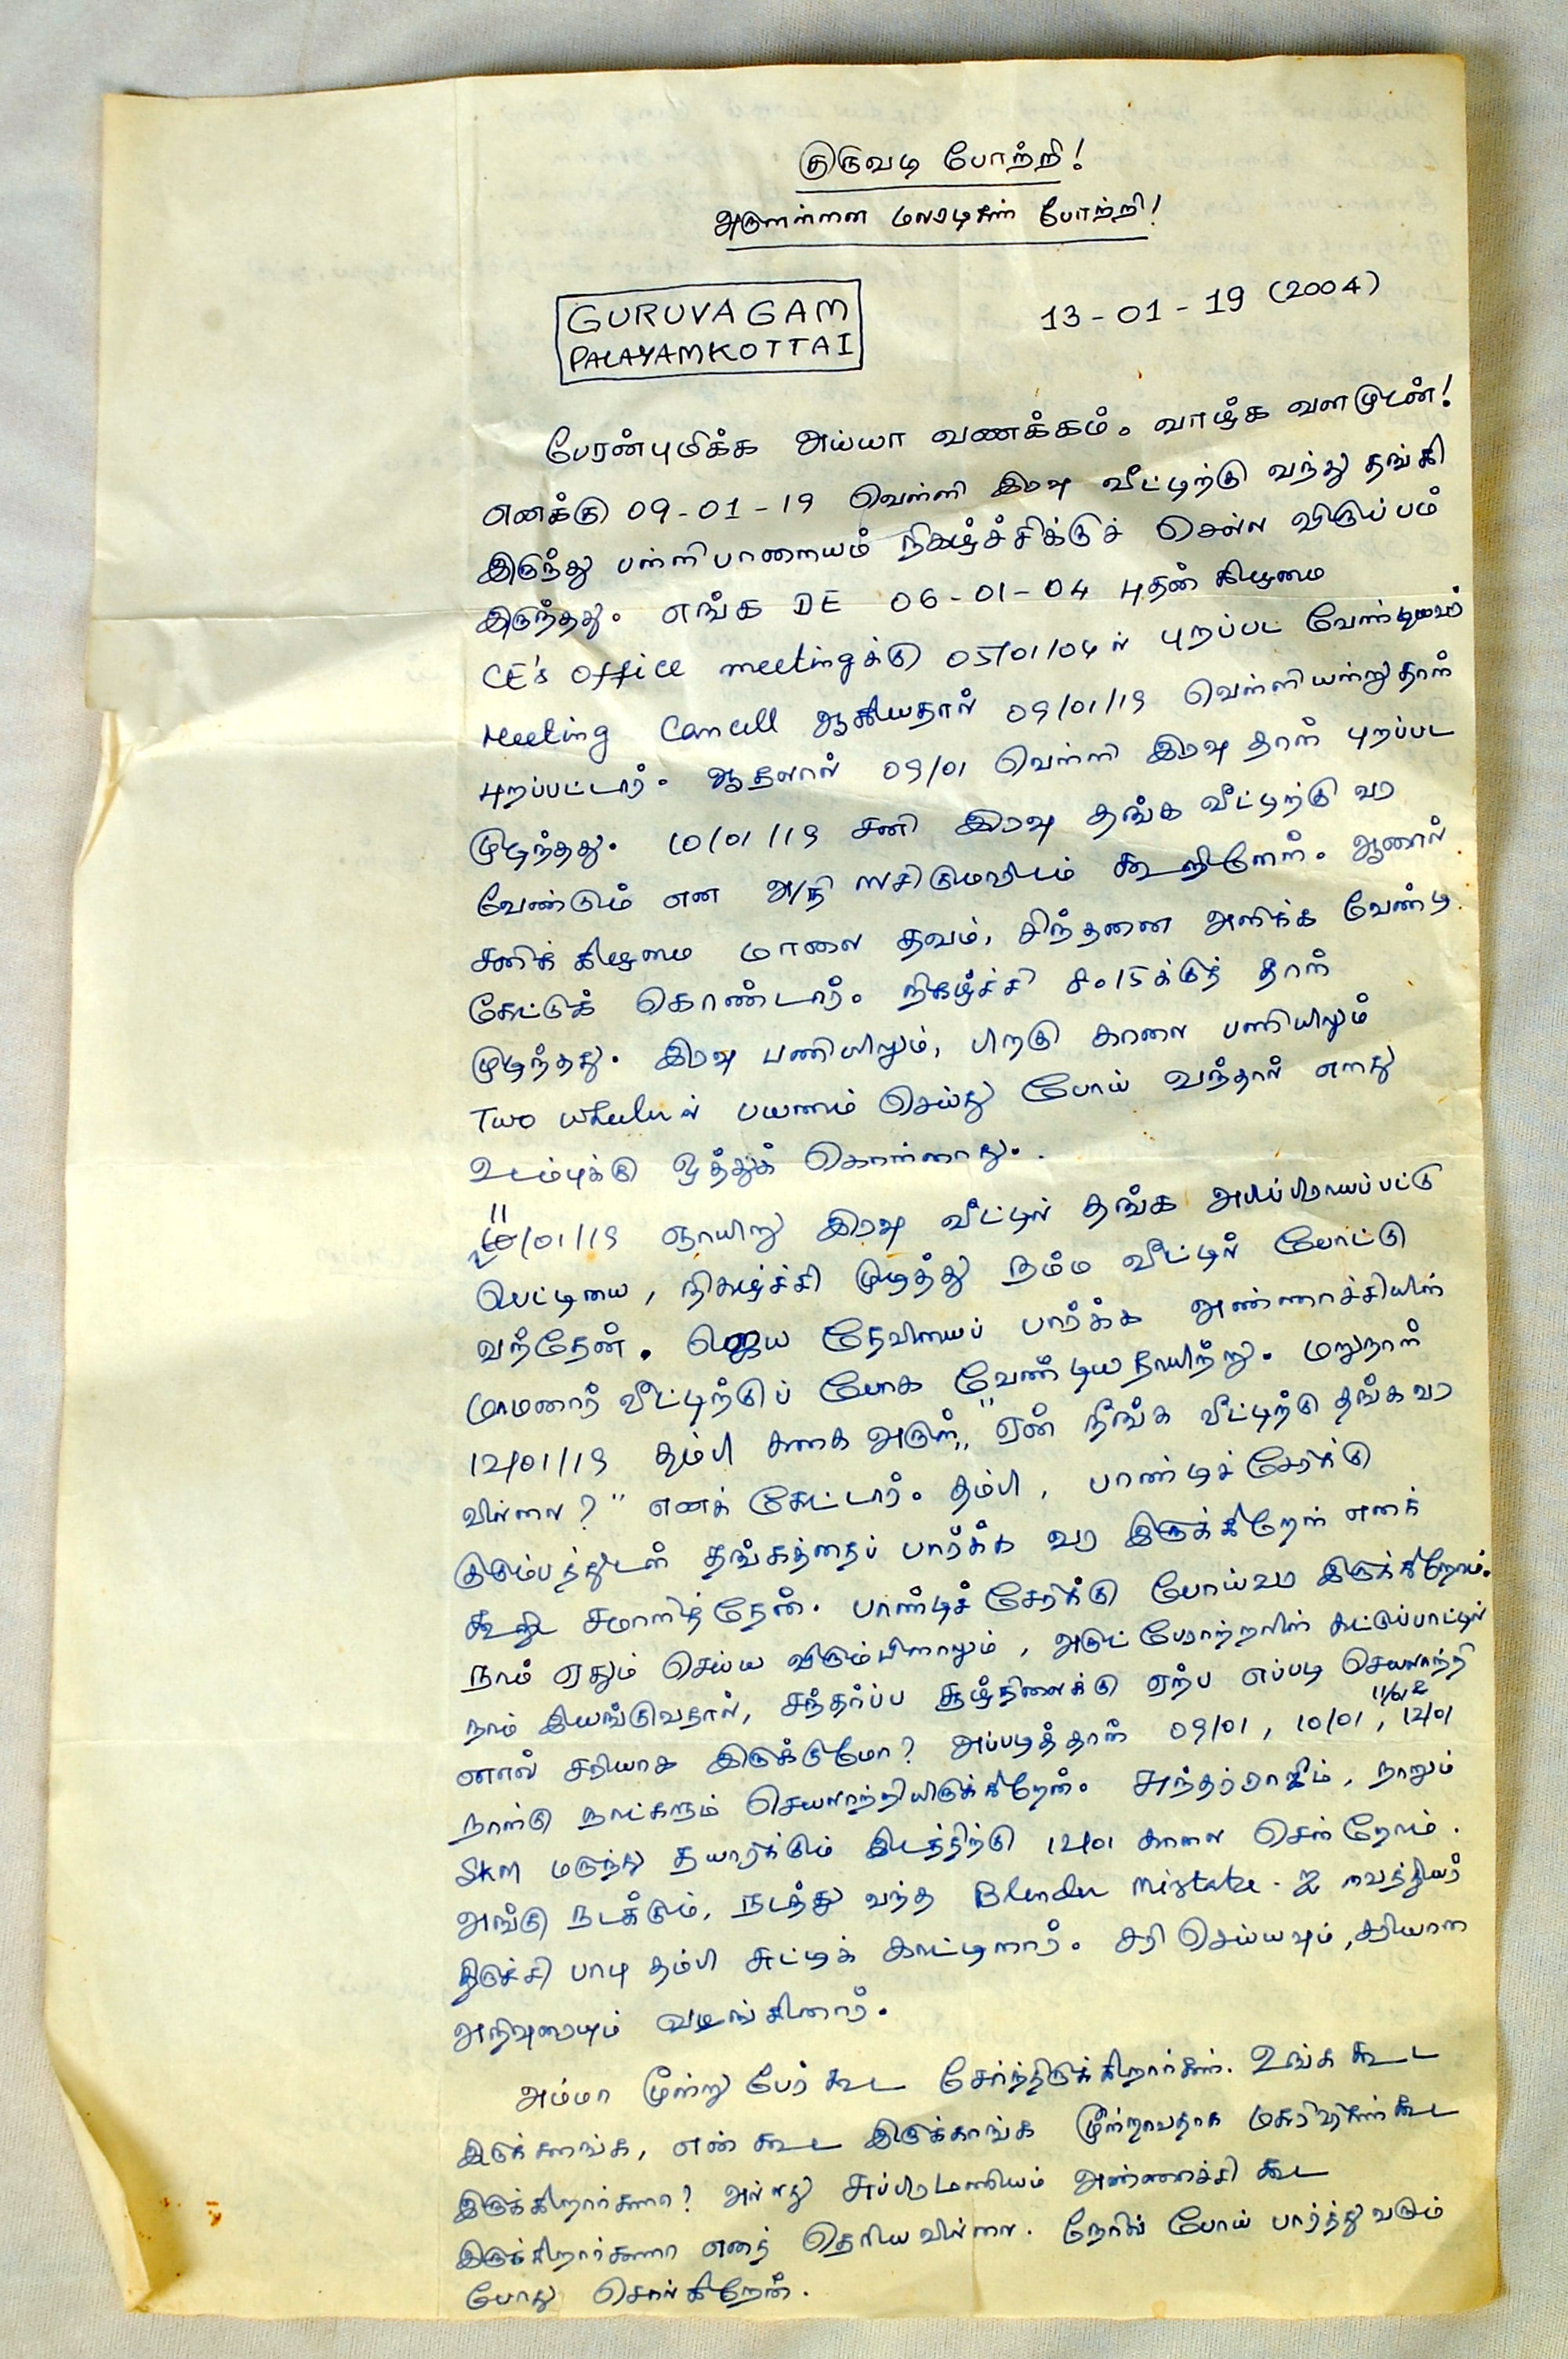 குருவடி போற்றி!
அருளன்னை மலரடிகள் போற்றி!
GURUVAGAM
PALAYAMKOTTAI
13-01-19 (2004)
பேரன்புமிக்க அய்யா வணக்கம். வாழ்க வளமுடன்!
எனக்கு 09-01-19 வெள்ளி இரவு வீட்டிற்கு வந்து தங்கி
இருந்து பள்ளிபாளையம் நிகழ்ச்சிக்குச் செல்ல விருப்பம்
இருந்தது. எங்க DE 06-01-04 புதன் கிழமை
CE's Office meetingக்கு 05/01/04ல் புறப்பட வேண்டியவர்
Meeting Cancell ஆகியதால் 09/01/19 வெள்ளியன்றுதான்
புறப்பட்டார். ஆதலால் 09/01 வெள்ளி இரவு தான் புறப்பட
முடிந்தது. 10/01/19 சனி இரவு தங்க வீட்டிற்கு வர
வேண்டும் என அ/நி கூறினேன். ஆனால்
சனிக் கிழமை மாலை தவம், சிந்தனை அளிக்க வேண்டி
கேட்டுக் கொண்டார். நிகழ்ச்சி 8.15க்குத் தான்
முடிந்தது. இரவு பனியிலும், பிறகு காலை பனியிலும்
Two wheelerல் பயணம் செய்து போய் வந்தால் எனது
உடம்புக்கு ஒத்துக் கொள்ளாது.
11/01/19 ஞாயிறு இரவு வீட்டில் தங்க அபிப்பிராயப்பட்டு
பெட்டியை, நிகழ்ச்சி முடித்து நம்ம வீட்டில் போட்டு
வந்தேன். ஜெய தேவியைப் பார்க்க அண்ணாச்சியின்
மாமனார் வீட்டிற்குப் போக வேண்டியதாயிற்று. மறுநாள்
12/01/19 தம்பி கனக அருள், "ஏன் நீங்க வீட்டிற்கு தங்க வர
வில்லை?" எனக் கேட்டார். தம்பி, பாண்டிச்சேரிக்கு
குடும்பத்துடன் தங்கத்தைப் பார்க்க வர இருக்கிறேன் எனக்
கூறி சமாளித்தேன். பாண்டிச்சேரிக்கு போய்வர இருக்கிறோம்.
நாம் ஏதும் செய்ய விரும்பினாலும், அருட் பேராற்றலின் கட்டுப்பாட்டில்
நாம் இயங்குவதால், சந்தர்ப்ப சூழ்நிலைக்கு ஏற்ப எப்படி செயலாற்றி
னால் சரியாக இருக்குமோ? அப்படித்தான் 09/01, 10/01, 11/01 & 12/01
நான்கு நாட்களும் செயலாற்றியிருக்கிறேன். சுந்தர்ராஜும், நானும்
SKM மருந்து தயாரிக்கும் இடத்திற்கு 12/01 காலை சென்றோம்.
அங்கு நடக்கும், நடந்து வந்த Blender mistake-ஐ வைத்தியர்
திருச்சி பாபு தம்பி சுட்டிக் காட்டினார். சரி செய்யவும், சரியான
அறிவுரையும் வழங்கினார்.
அம்மா மூன்று பேர் கூட சேர்ந்திருக்கிறார்கள். உங்க கூட
இருக்காங்க, என் கூட இருக்காங்க மூன்றாவதாக மகரிஷிகள் கூட
இருக்கிறார்களா? அல்லது சுப்பிரமணியம் அண்ணாச்சி கூட
இருக்கிறார்களா எனத் தெரியவில்லை. நேரில் போய் பார்த்து வரும்
போது சொல்கிறேன்.